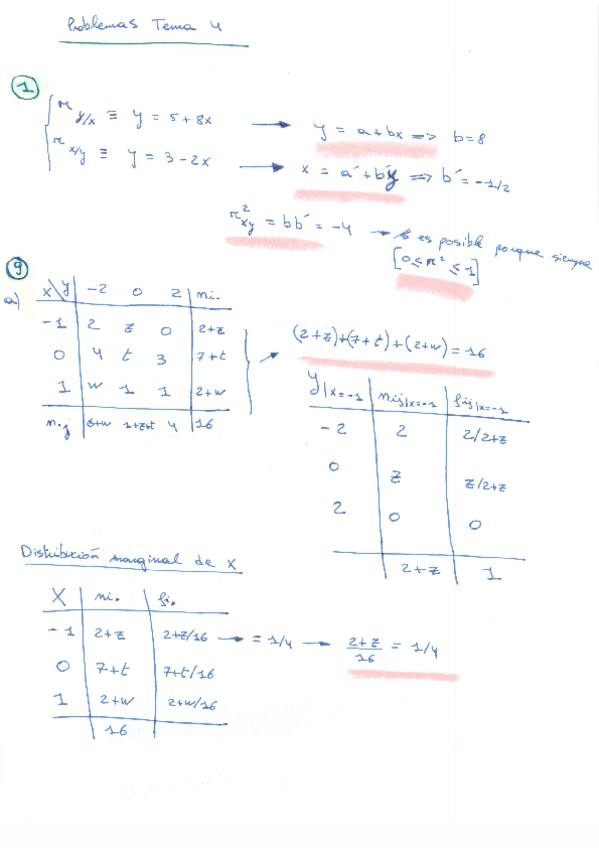 Problemas Tema 4
1
r y/x ≡ y = 5 + 8x → y = a + bx ⇒ b = 8
r x/y ≡ y = 3 - 2x → x = a' + b'y ⇒ b' = -1/2
r²xy = bb' = -4 → es posible porque siempre
[0 ≤ r² ≤ 1]
9
a)
x\y -2 0 2 ni.
-1 2 z 0 2+z
0 4 t 3 7+t
1 w 1 1 2+w
n.j 6+w 1+z+t 4 16
(2+z)+(7+t)+(2+w) = 16
Y|x=-1 nij|x=-1 fij|x=-1
-2 2 2/2+z
0 z z/2+z
2 0 0
2+z 1
Distribución marginal de X
X ni. fi.
-1 2+z 2+z/16 → = 1/4 → 2+z/16 = 1/4
0 7+t 7+t/16
1 2+w 2+w/16
16